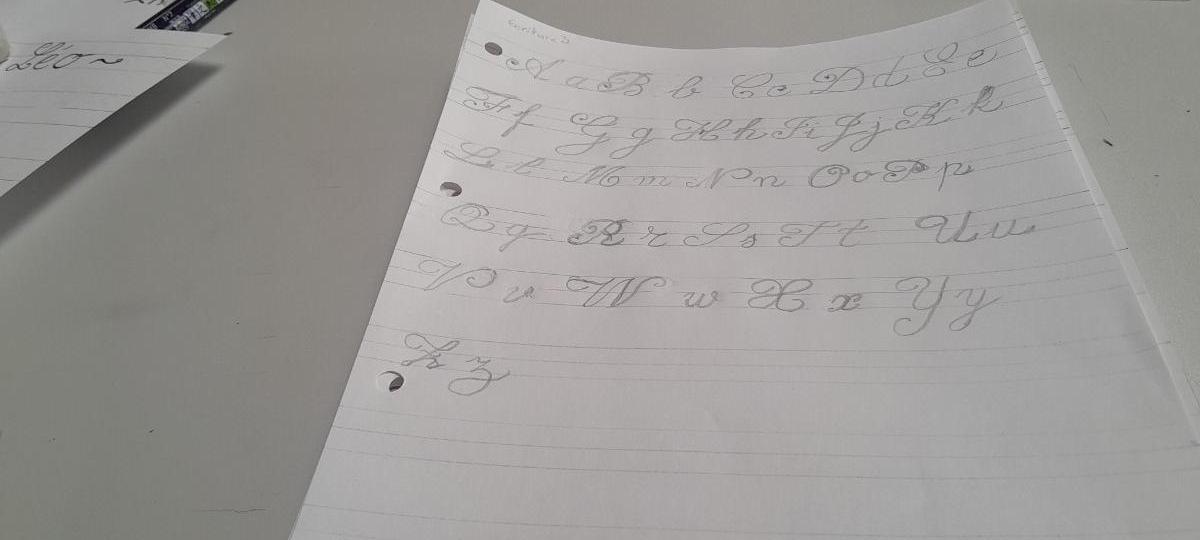 Léo ~
A a B b C c D d E e
F f G g H h I i J j K k
L l M m N n O o P p
Q q R r S s T t U u
V v W w X x Y y
Z z